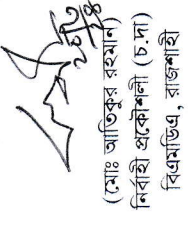 (মোঃ আতিকুর রহমান)
নির্বাহী প্রকৌশলী (চ.দা)
বিএমডিএ, রাজশাহী